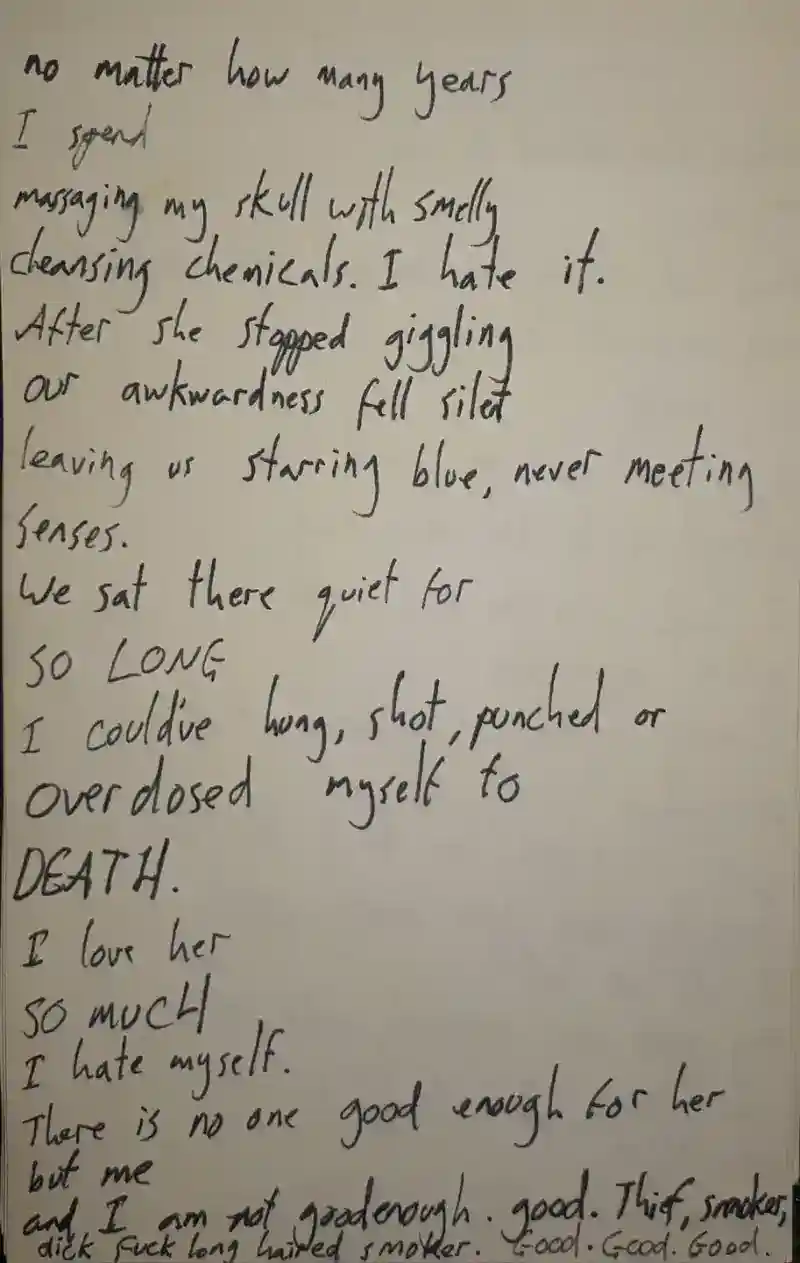 no matter how many years
I spend
massaging my skull with smelly
cleansing chemicals. I hate it.
After she stopped giggling
our awkwardness fell silet
leaving us starring blue, never meeting
senses.
We sat there quiet for
SO LONG
I could've hung, shot, punched or
overdosed myself to
DEATH.
I love her
SO MUCH
I hate myself.
There is no one good enough for her
but me
and I am not good enough. good. Thief, smoker,
dick fuck long haired smoker. Good. Good. Good.